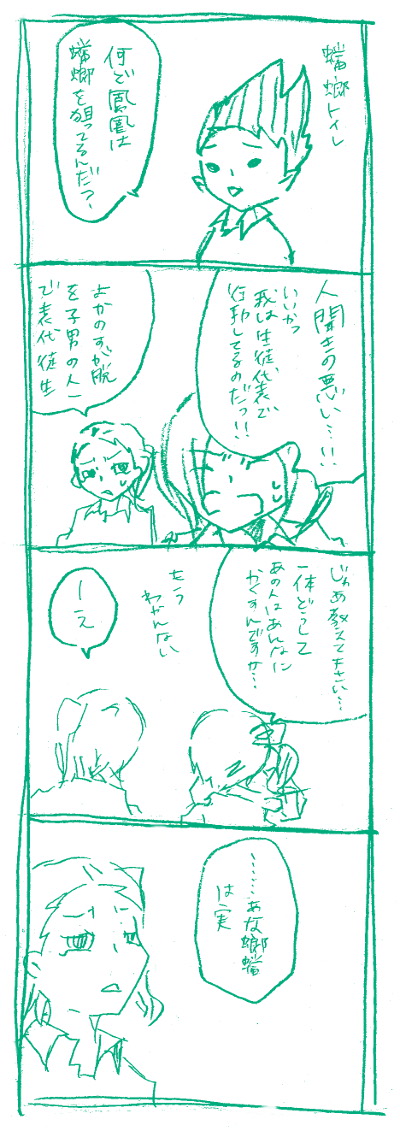 蟷螂トイレ
何で鳳凰は
蟷螂を狙ってるんだっ?
人聞きの悪い…!!
いいかっ
我は生徒代表で
行動してるのだっ!!
よかのすが脱
を子男の人一
で表代徒生
じゃあ教えて下さい…
一体どうして
あの人はあんなに
かくすんですか…
もう
わかんない
ーえ
………あな螂蟷
は実